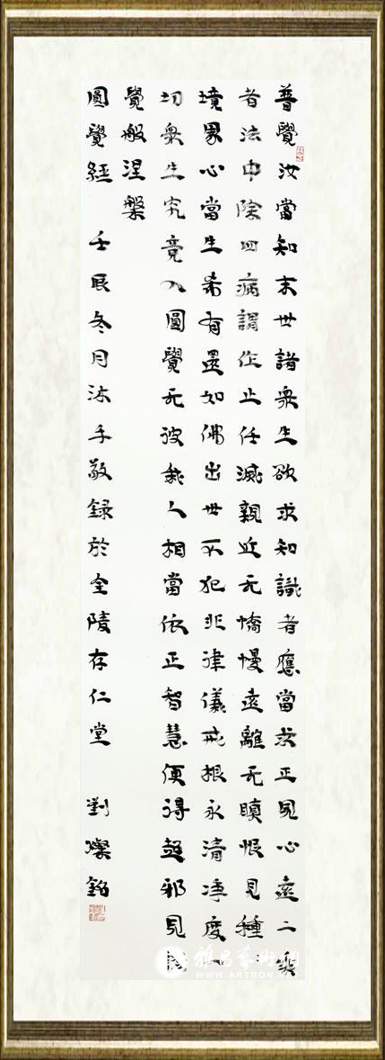 普覺汝當知末世諸衆生欲求知識者應當求正見心遠二乘
者法中除四病謂作止任滅親近无憍慢遠離无瞋恨見種
境界心當生希有還如佛出世不犯非律儀戒根永清淨度一
切衆生究竟入圓覺无彼我人相當依正智慧便得超邪見證
覺般涅槃
圓覺經 壬辰冬月沐手敬録於金陵存仁堂 劉燦銘